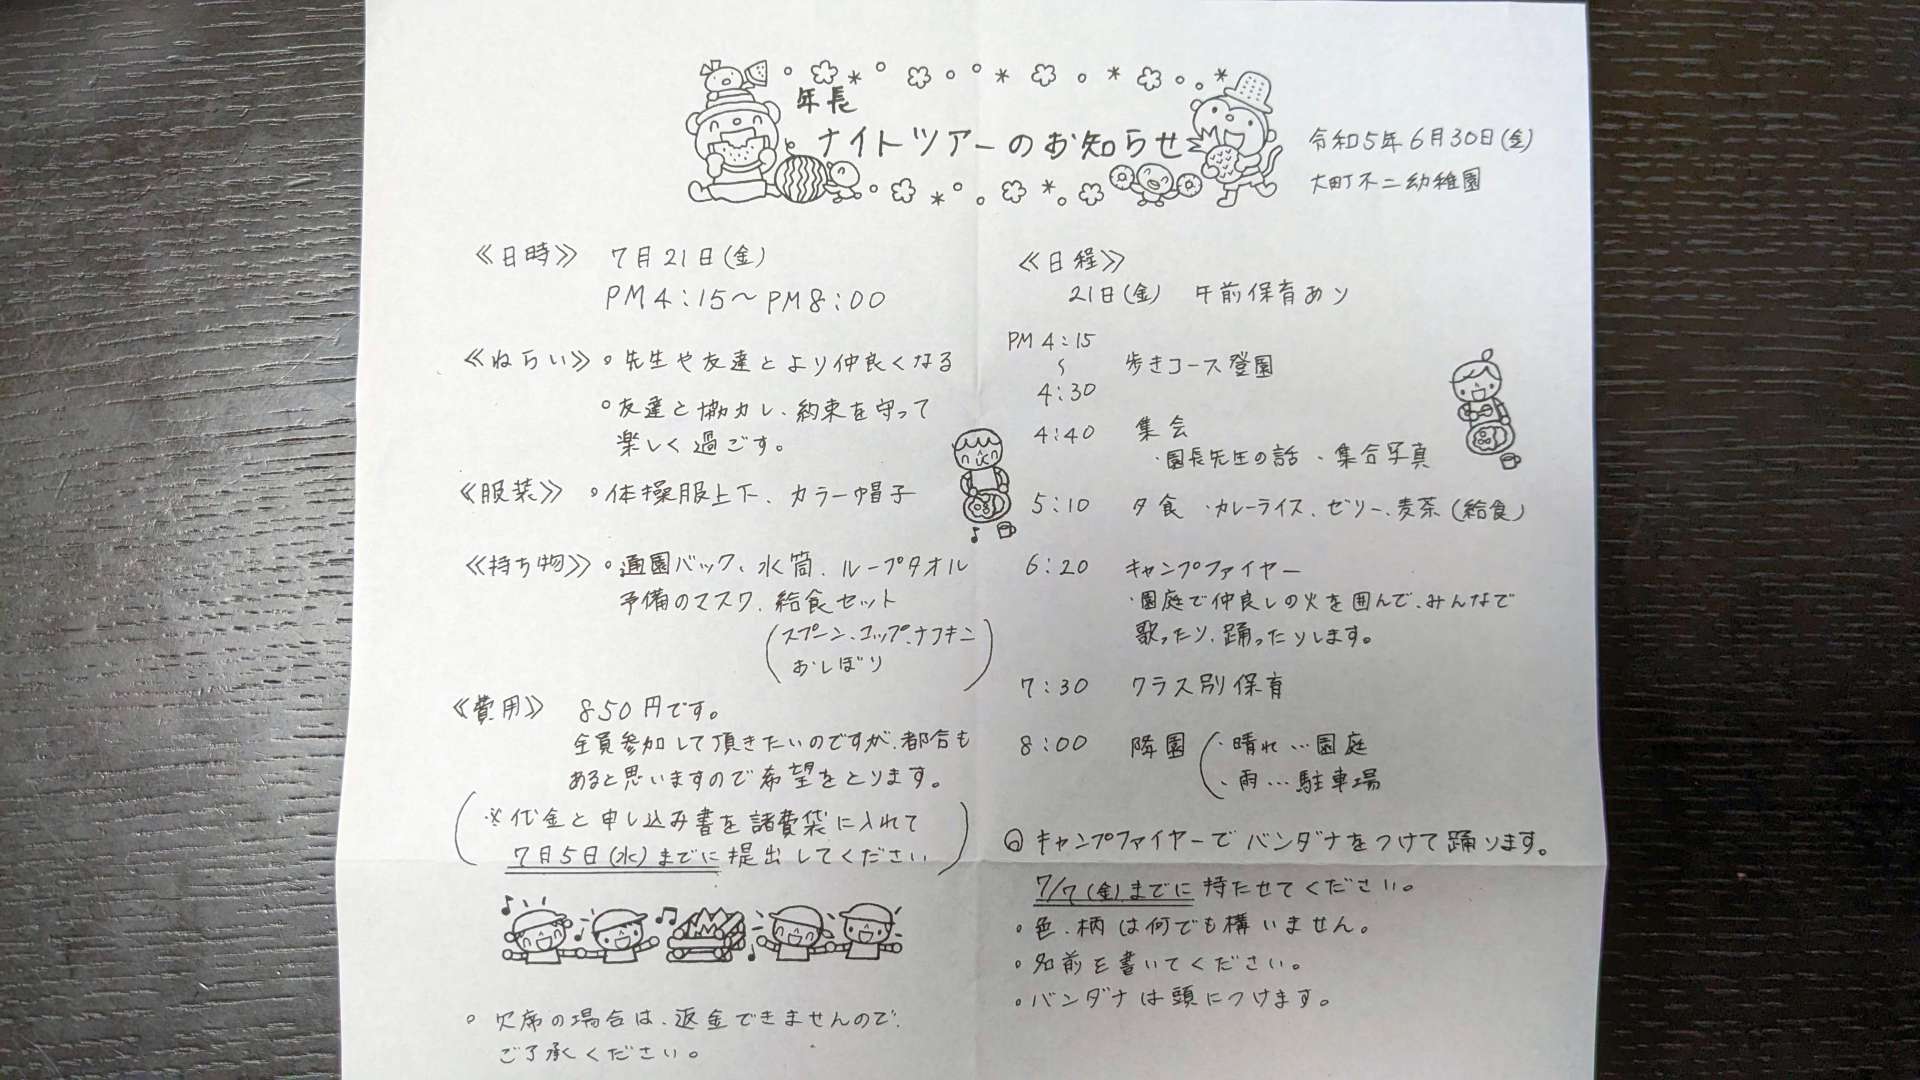 年長
ナイトツアーのお知らせ
令和5年6月30日(金)
大町不二幼稚園
≪日時≫ 7月21日(金)
PM4:15〜PM8:00
≪ねらい≫ ○先生や友達とより仲良くなる
○友達と協力し、約束を守って
楽しく過ごす。
≪服装≫ ○体操服上下、カラー帽子
≪持ち物≫ ○通園バック、水筒、ループタオル
予備のマスク、給食セット
(スプーン、コップ、ナフキン
おしぼり)
≪費用≫ 850円です。
全員参加して頂きたいのですが、都合も
あると思いますので希望をとります。
(※代金と申し込み書を諸費袋に入れて
7月5日(水)までに提出してください)
○欠席の場合は、返金できませんので、
ご了承ください。
≪日程≫
21日(金) 午前保育あり
PM 4:15
〜
4:30
歩きコース登園
4:40 集会
・園長先生の話 ・集合写真
5:10 夕食 ・カレーライス、ゼリー、麦茶(給食)
6:20 キャンプファイヤー
・園庭で仲良しの火を囲んで、みんなで
歌ったり、踊ったりします。
7:30 クラス別保育
8:00 降園(・晴れ…園庭
・雨…駐車場
◎キャンプファイヤーでバンダナをつけて踊ります。
7/7(金)までに持たせてください。
○色、柄は何でも構いません。
○名前を書いてください。
○バンダナは頭につけます。